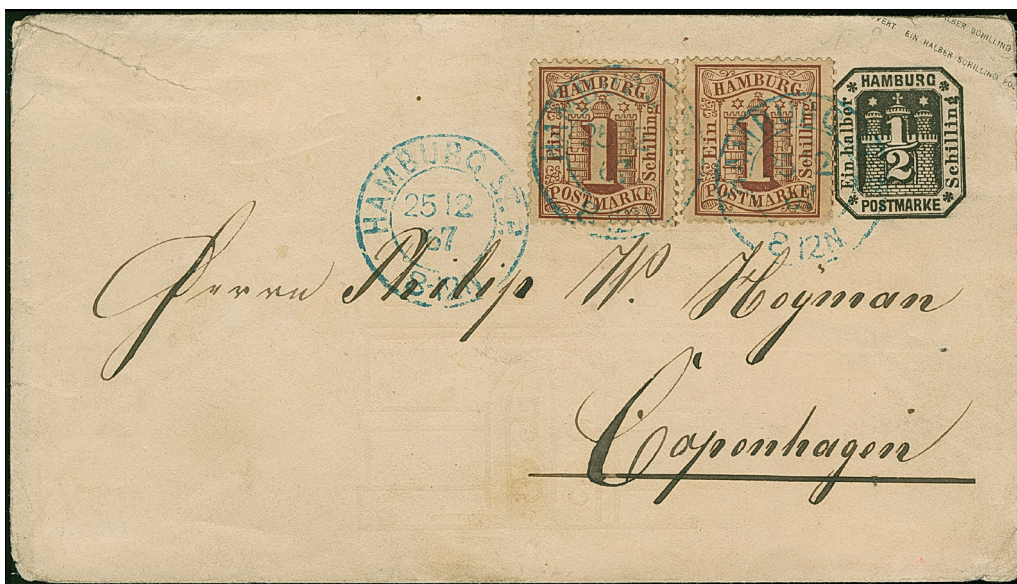 EIN HALBER SCHILLING
EIN HALBER SCHILLING
HAMBURG
Ein
1
Schilling
POSTMARKE
HAMBURG
Ein
1
Schilling
POSTMARKE
HAMBURG
Ein halber
1/2
Schilling
POSTMARKE
HAMBURG
25 12
67
8 12N
Herrn Philip W. Heÿman
Copenhagen